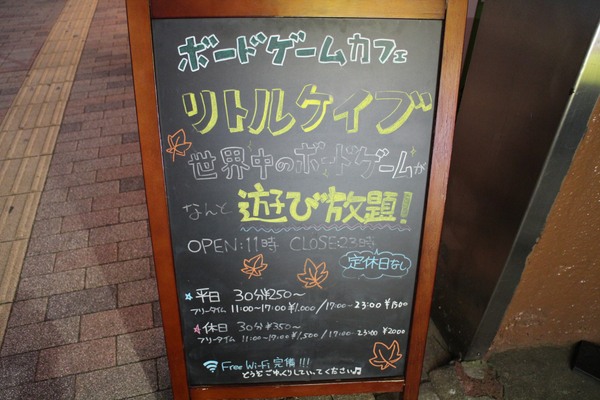 ボードゲームカフェ
リトルケイブ
世界中のボードゲームが
なんと 遊び放題!
OPEN:11時 CLOSE:23時
定休日なし
平日 30分¥250~
フリータイム 11:00~17:00¥1,000/17:00~23:00 ¥1500
休日 30分¥350~
フリータイム 11:00~17:00¥1,500/17:00~23:00 ¥2000
Free Wi-Fi 完備!!!
どうぞごゆっくりしていってください♫